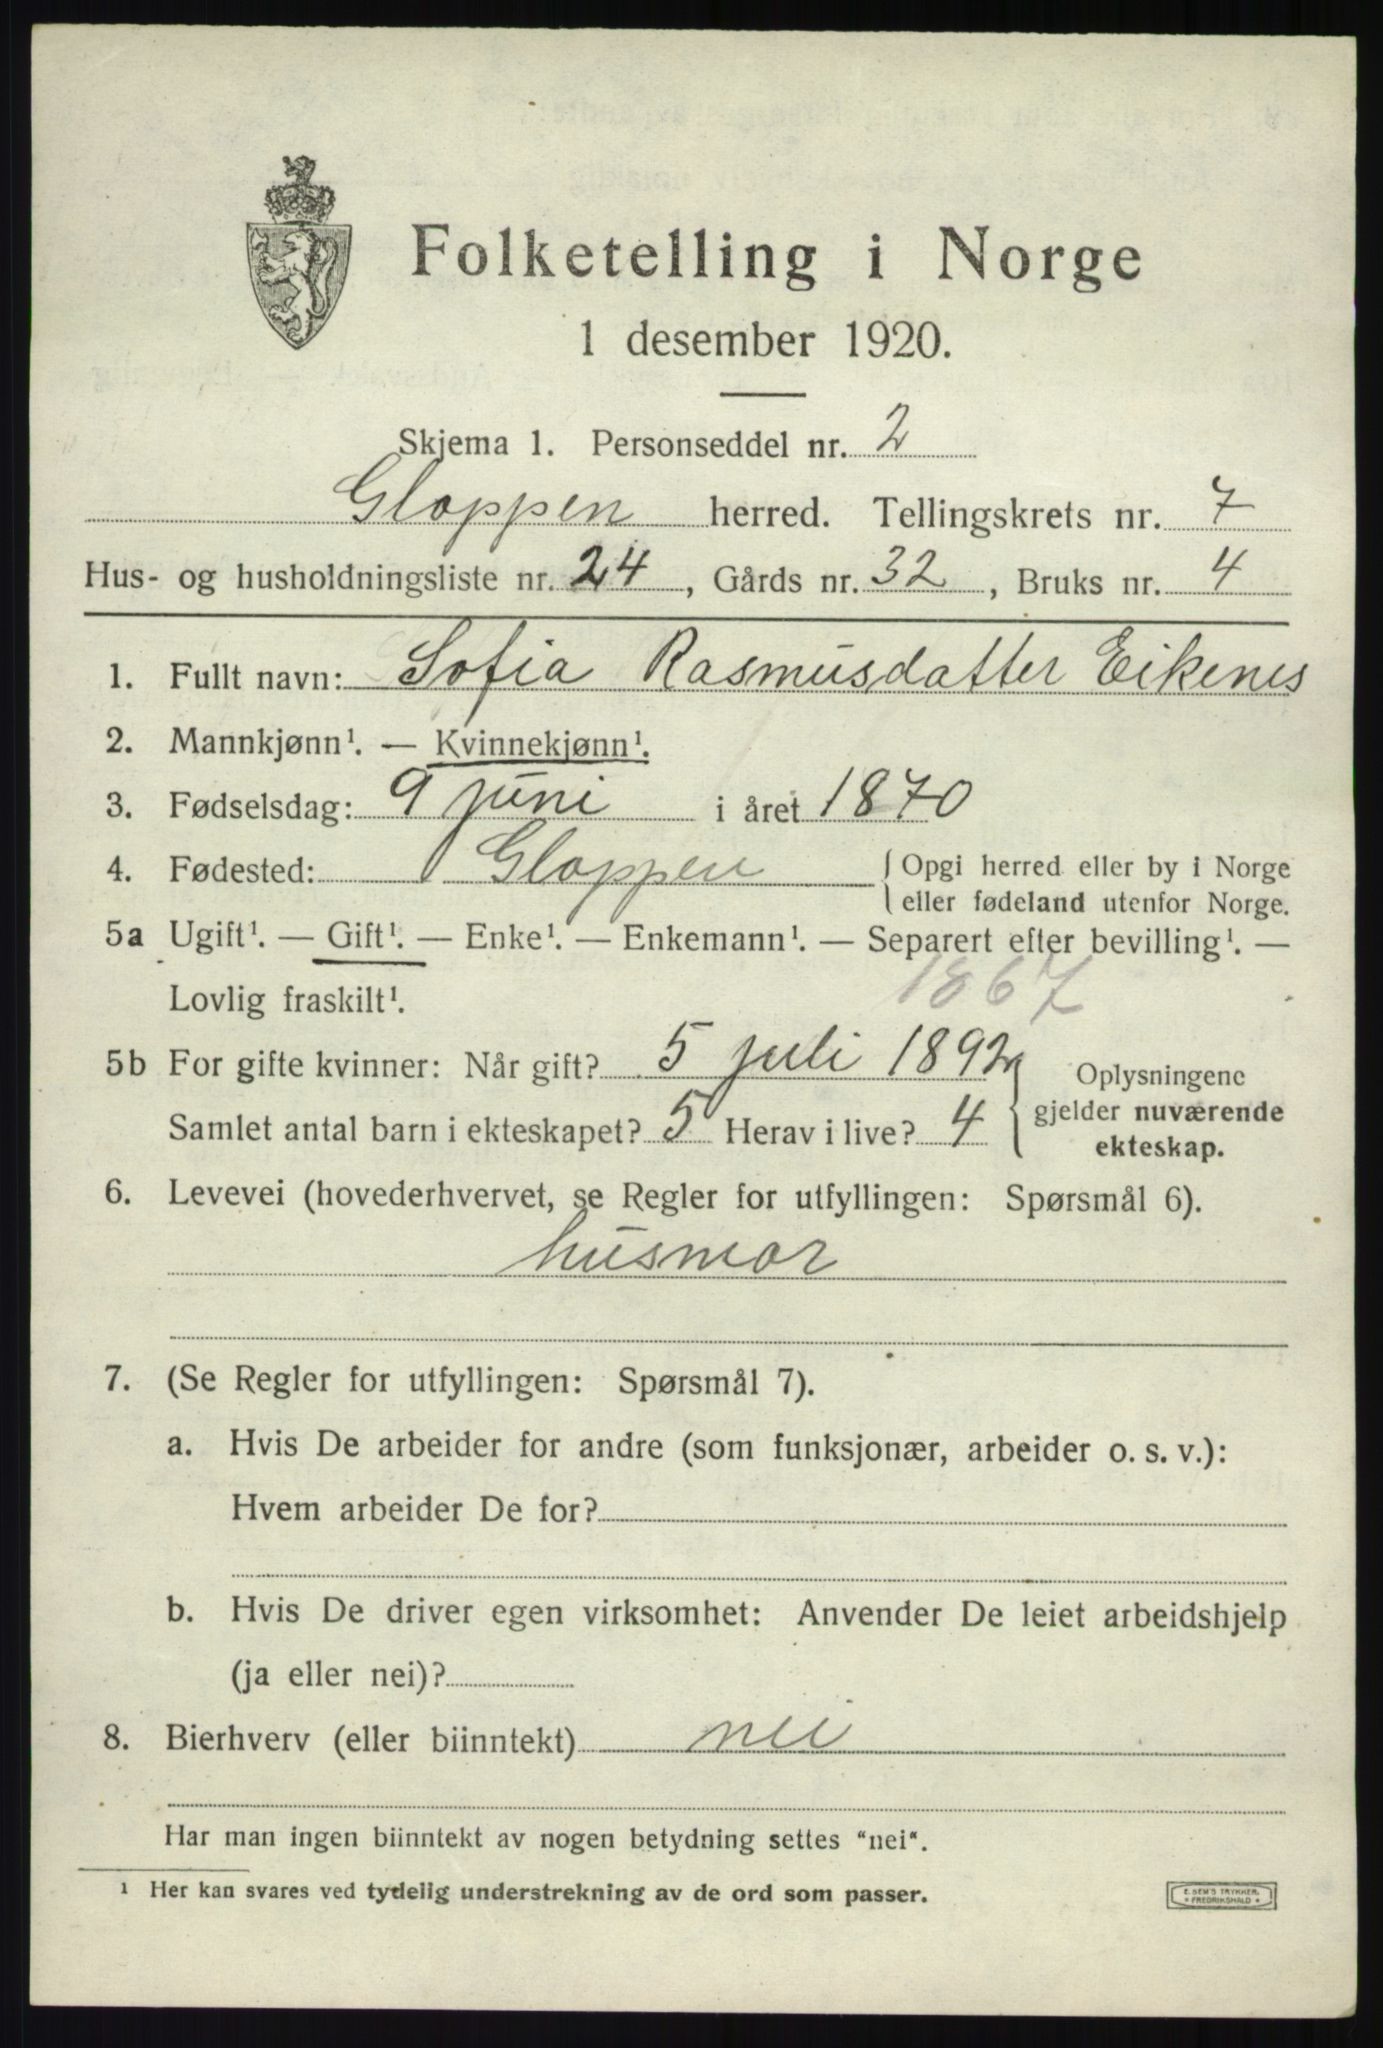 Folketelling i Norge
1 desember 1920.
Skjema 1. Personseddel nr. 2
Gloppen herred. Tellingskrets nr. 7
Hus- og husholdningsliste nr. 24, Gårds nr. 32, Bruks nr. 4
1. Fullt navn: Sofia Rasmusdatter Eikenes
2. Mannkjønn¹. — Kvinnekjønn¹.
3. Fødselsdag: 9 juni i året 1870
4. Fødested: Gloppen { Opgi herred eller by i Norge
eller fødeland utenfor Norge.
5a Ugift¹. — Gift¹. — Enke¹. — Enkemann¹. — Separert efter bevilling¹. —
Lovlig fraskilt¹. 1867
5b For gifte kvinner: Når gift? 5 juli 1892
Samlet antal barn i ekteskapet? 5 Herav i live? 4
} Oplysningene
gjelder nuværende
ekteskap.
6. Levevei (hovederhvervet, se Regler for utfyllingen: Spørsmål 6).
husmor
7. (Se Regler for utfyllingen: Spørsmål 7).
a. Hvis De arbeider for andre (som funksjonær, arbeider o. s. v.):
Hvem arbeider De for?
b. Hvis De driver egen virksomhet: Anvender De leiet arbeidshjelp
(ja eller nei)?
8. Bierhverv (eller biinntekt) nei
Har man ingen biinntekt av nogen betydning settes "nei".
¹ Her kan svares ved tydelig understrekning av de ord som passer.
E. SEM'S TRYKKER.
FREDRIKSHALD